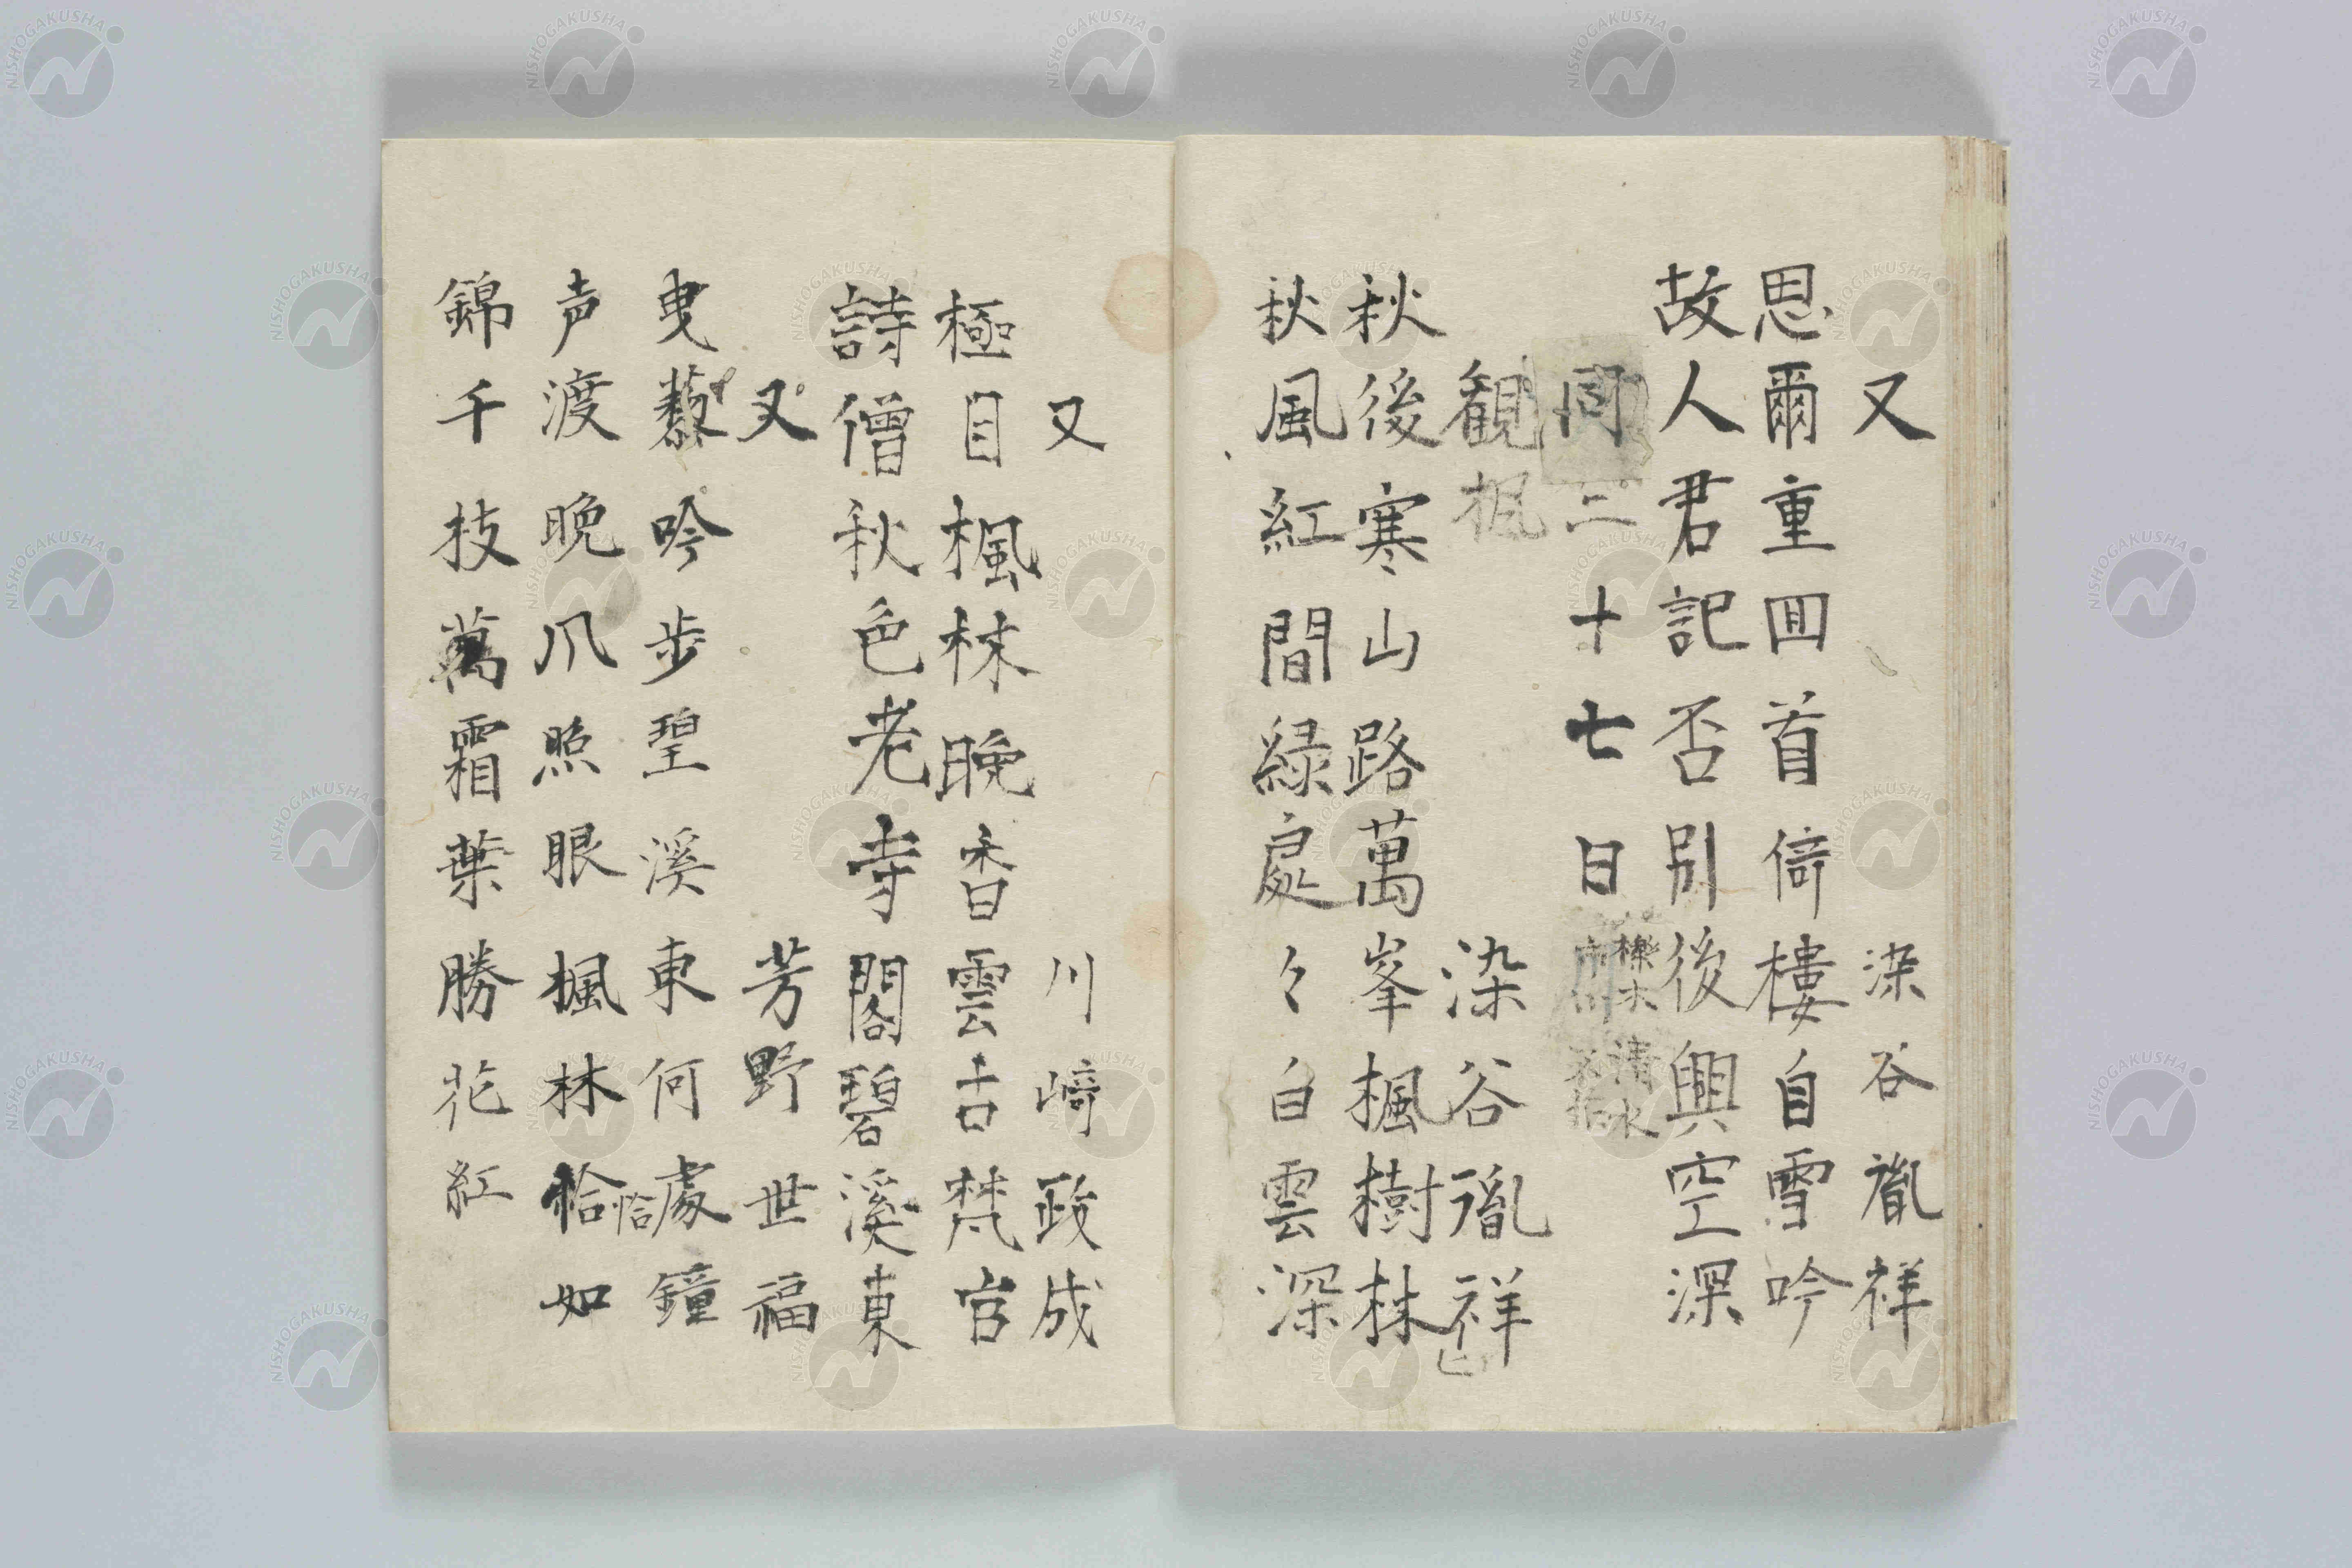 又　染谷胤祥
思爾重回首倚樓自雪吟
故人君記否別後興空深
同二十七日
櫟木 清水
観楓　染谷胤祥
秋後寒山路萬峯楓樹林
秋風紅間緑處々自雲深
又　川崎政成
極目楓林晩香雲古梵宮
詩僧秋色老寺閣碧溪東
又　芳野世福
曳藜吟步碧溪東何處鐘
声渡晩爪照眼楓林袷如
恰
錦千枝萬霜葉勝花紅
NISHOGAKUSHA